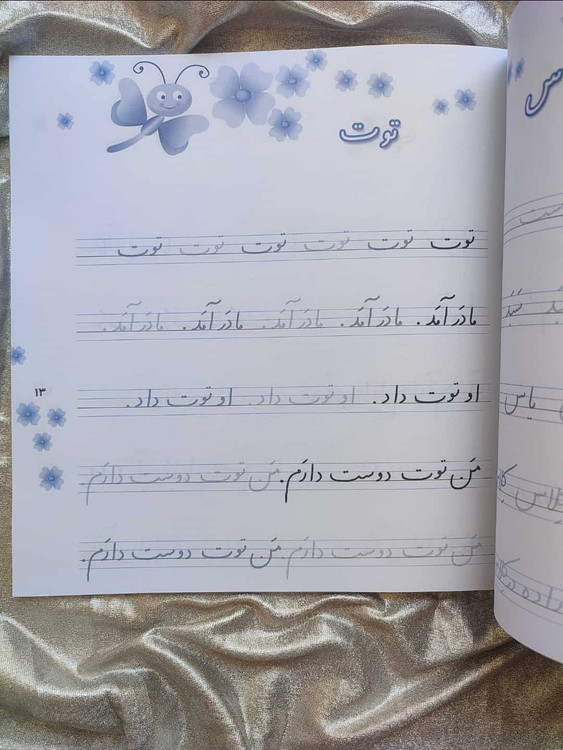 توت
توت توت توت توت توت توت
مادَر آمَد. مادَر آمَد. مادَر آمَد. مادَر آمَد. مادَر آمَد.
او توت داد. او توت داد. او توت داد.
۱۳
مَن توت دوست دارَم. مَن توت دوست دارَم
مَن توت دوست دارَم مَن توت دوست دارَم.
یاس